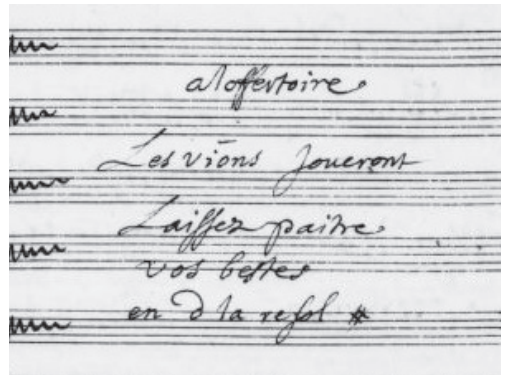 a loffertoire
Les viōns Joueront
Laissez paitre
vos bestes
en D la re sol #